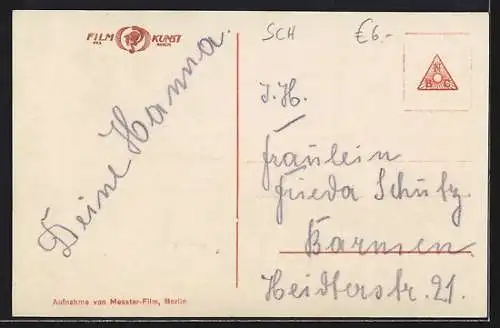 FILM KUNST
SCH
€6.-
N
B C
Deine Hanna.
I. H.
Fräulein
Frieda Schütz
Barmen
Heidterstr. 21.
Aufnahme von Messter-Film, Berlin